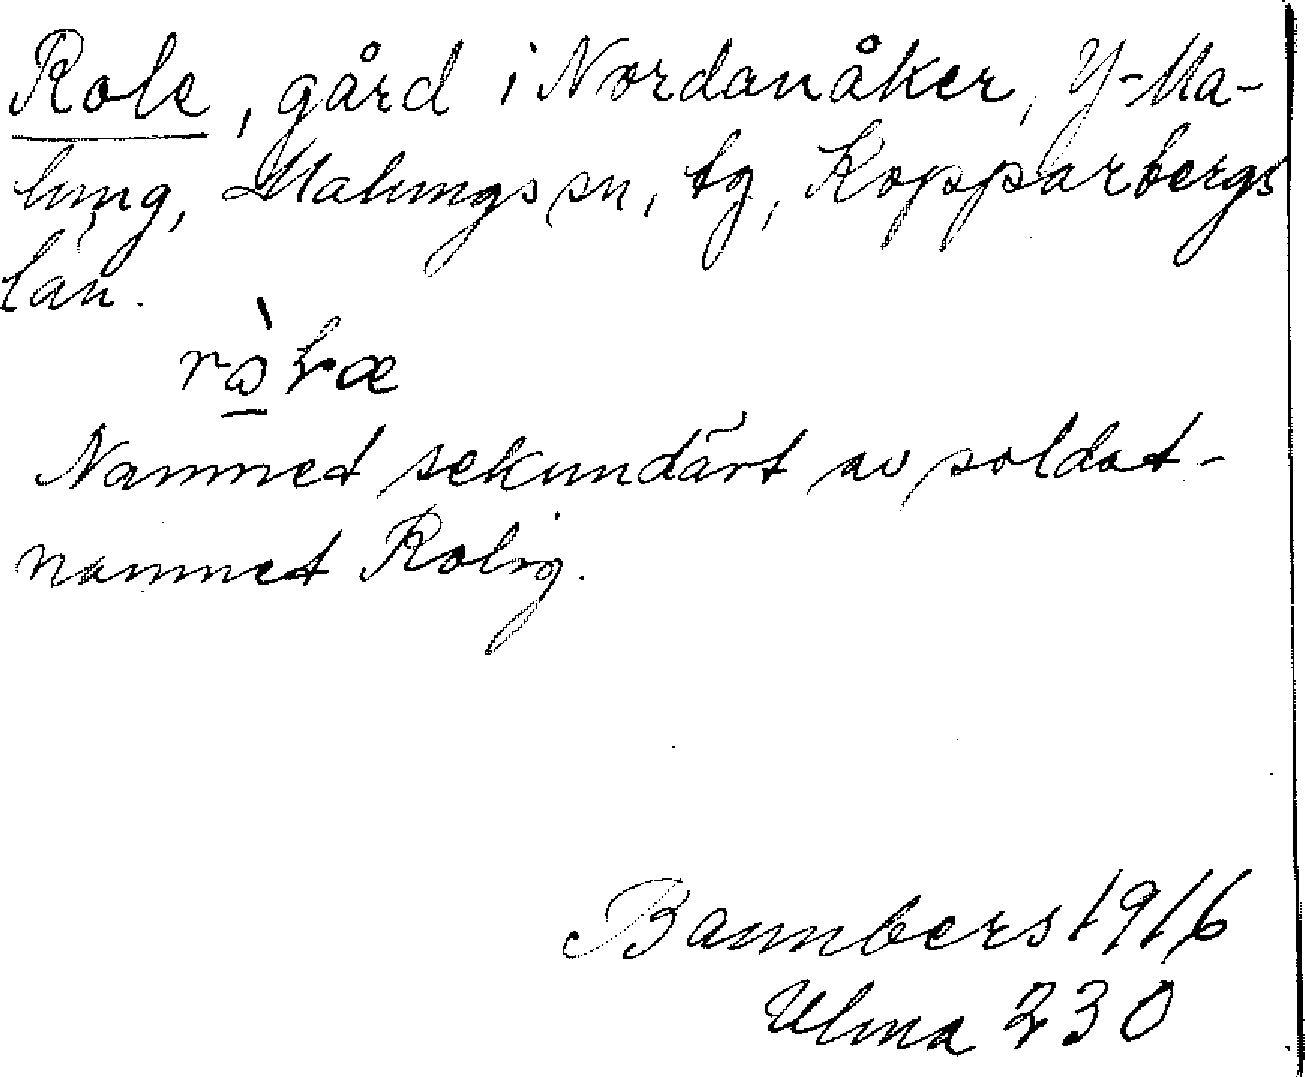 Role, gård i Nordanåker, Y-Ma-
lung, Malungs sn, tg, Kopparbergs
län.
Namnet sekundärt av soldat-
namnet Rolig.
Baumbers 1916
Ulma 230